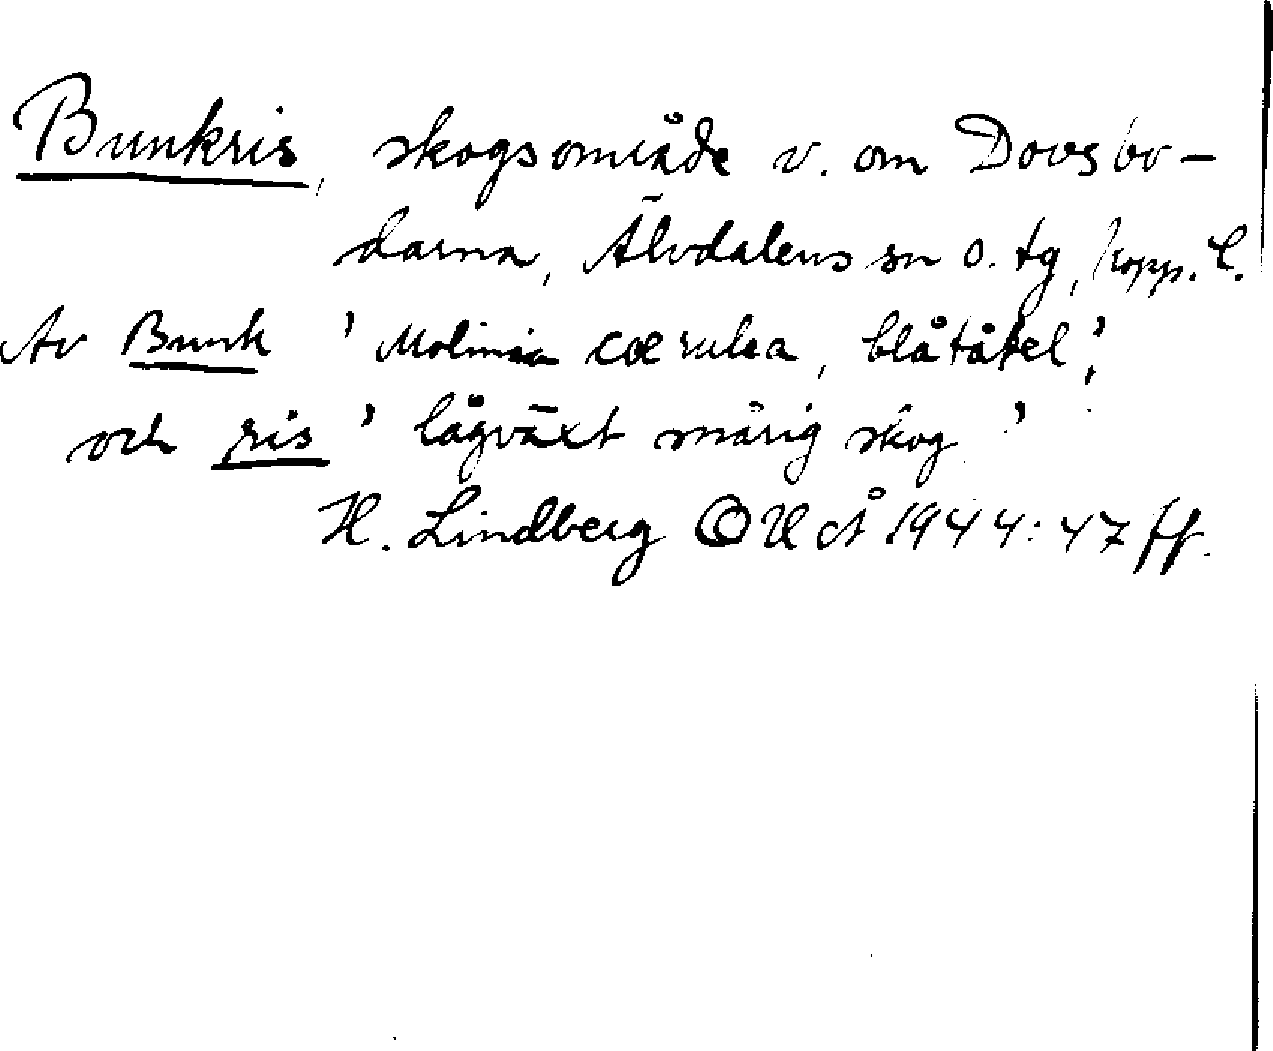 Bunkris, skogsområde v. om Dovsbo-
darna, Älvdalens sn o. tg, Kopp. l.
Av Bunk 'Molinia cœrulea, blåtåtel',
och ris 'lågväxt snårig skog'
H. Lindberg OUÅ 1944: 47 ff.